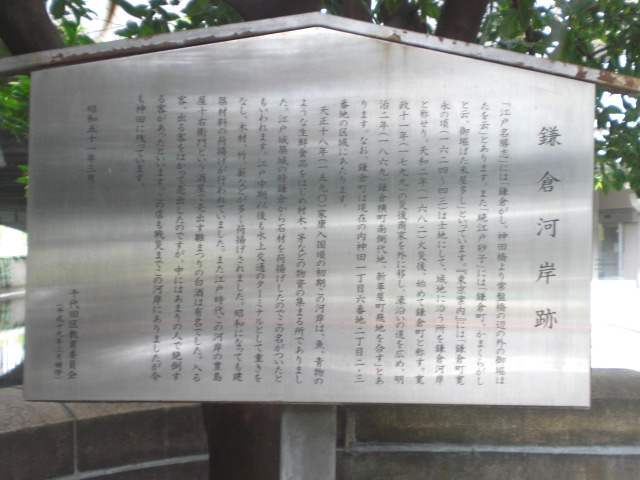 鎌倉河岸跡
『江戸名勝志』には「鎌倉がし、神田橋より常盤橋の辺の外の御堀は
たを云」とあります。また『続江戸砂子』には「鎌倉町、かまくらがし
と云、御堀ばた米屋多し」といっています。『東京案内』には「鎌倉町寛
永の頃(一六二四-四三)は士地にして、城地に沿う所を鎌倉河岸
と称せり。天和二年(一六八二)火災後、始めて鎌倉町と称す。寛
政十一年(一七九九)災後商家を外に移し、濠沿いの道を広め、明
治二年(一八六九)鎌倉横町南側代地、新革屋町飛地を合す」とあ
ります。なお、鎌倉町は現在の内神田一丁目六番地二丁目二・三
番地の区域にあたります。
天正十八年(一五九〇)家康入国頃の初期この河岸は、魚、青物の
ような生鮮食品をはじめ材木、茅などの物資の集まる所でありまし
た。江戸城築城の時鎌倉から石材を荷揚げしたのでこの名がついたと
もいわれます。江戸中期以後も水上交通のターミナルとして重きを
なし、木材、竹、薪などが多く荷揚げされました。昭和になっても建
築材料の荷揚げが行われていました。また江戸時代、この河岸の豊島
屋十右衛門という酒屋で売出す雛まつりの白酒は有名でした。入る
客、出る客をはかって売出したのですが、中にはあまりの人で絶倒す
る客があったといいます。この店も戦災までこの河岸にありましたが今
も神田に残っています。
昭和五十一年三月
千代田区教育委員会